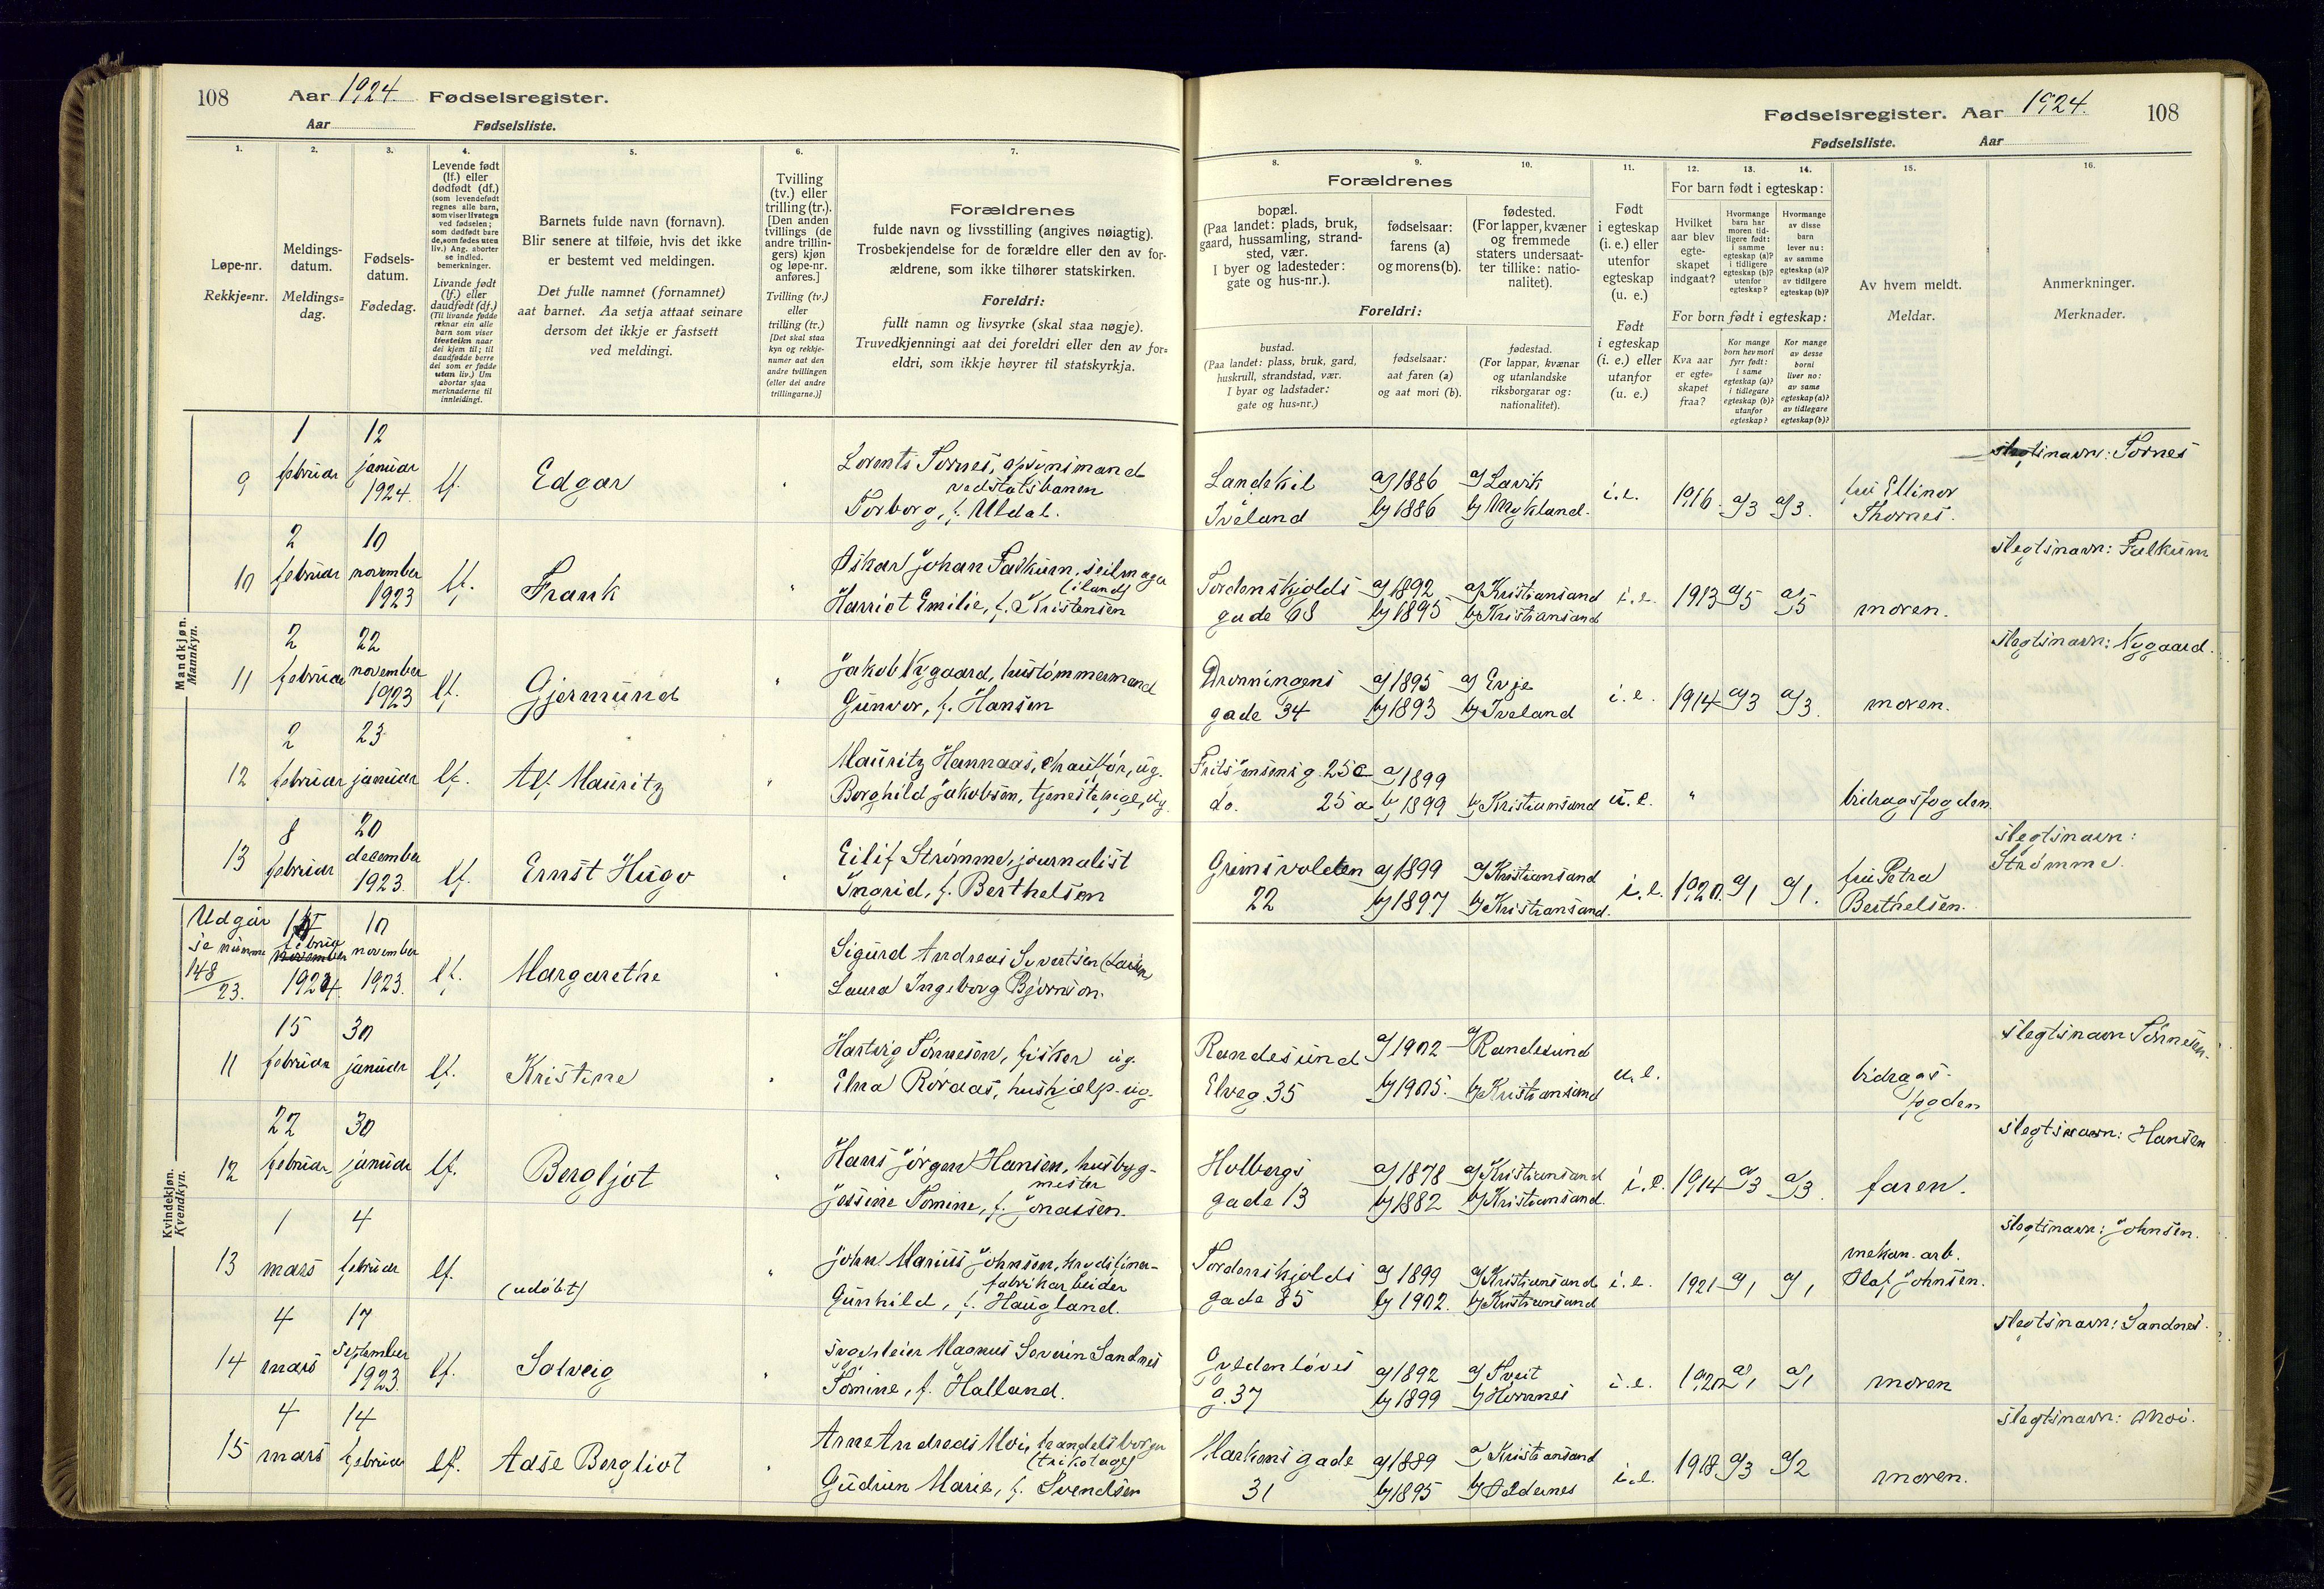 108 Aar 1924. Fødselsregister.
Aar Fødselsliste.
1. 2. 3. 4. 5. 6. 7.
Løpe-nr.
Rekkje=nr.
Meldings-
datum.
Meldings=
dag.
Fødsels-
datum.
Fødedag.
Levende født
(lf.) eller
dødfødt (df.)
(som levendefødt
regnes alle barn,
som viser livstegn
ved fødselen;
som dødfødt bare
de, som fødes uten
liv.) Ang. aborter
se indled.
bemerkninger.
Livande født
(lf.) eller
daudfødt (df.)
(Til livande fødde
reknar ein alle
barn som viser
livsteikn naar
dei kjem til; til
daudfødde berre
dei som er fødde
utan liv.) Um
abortar sjaa
merknaderne til
innleidingi.
Barnets fulde navn (fornavn).
Blir senere at tilføie, hvis det ikke
er bestemt ved meldingen.
Det fulle namnet (fornamnet)
aat barnet. Aa setja attaat seinare
dersom det ikkje er fastsett
ved meldingi.
Tvilling
(tv.) eller
trilling (tr.).
[Den anden
tvillings (de
andre trillin-
gers) kjøn
og løpe-nr.
anføres.]
Tvilling (tv.)
eller
trilling (tr.)
[Det skal staa
kyn og rekkje-
numer aat den
andre tvillingen
(eller dei andre
trillingarne.)]
Forældrenes
fulde navn og livsstilling (angives nøiagtig).
Trosbekjendelse for de forældre eller den av for-
ældrene, som ikke tilhører statskirken.
Foreldri:
fullt namn og livsyrke (skal staa nøgje).
Truvedkjenningi aat dei foreldri eller den av for=
eldri, som ikkje høyrer til statskyrkja.
Mandkjøn.
Mannkyn.
1 12
9 februar januar lf. Edgar " Lorents Tornes, opsynsmand
1924. ved statsbanen
Torborg, f. Uldal.
2 10
10 februar november lf. Frank " Oskar Johan Falkum, seilmager
1923 (iland)
Harriot Emilie, f. Kristensen
2 22
11 februar november lf. Gjermund " Jakob Nygaard, hustømmermand
1923 Gunvor, f. Hansen
2 23
12 februar januar lf. Alf Mauritz " Mauritz Hannaas, chauffør, ug.
Borghild Jakobsen, tjenestepige, ug.
8 20
13 februar december lf. Ernst Hugo " Eilif Strømme, journalist
1923. Ingrid, f. Berthelsen
Kvindekjøn.
Kvendkyn.
Udgår 10
se nummer november lf. Margarethe " Sigurd Andreas Syvertsen
148/23. 1924. 1923. Laura Ingeborg Bjørnson.
15 30
11 februar januar lf. Kristine " Hartvig Tønnesen, fisker ug.
Elna Røraas, hushjælp. ug.
22 30
12 februar januar lf. Bergljot " Hans Jørgen Hansen, husbyg-
mester
Jossine Tomine, f. Jonassen.
1 4
13 mars februar lf. (udøbt) " John Marius Johnsen,
fabrikarbeider
Gunhild, f. Haugland.
4 17
14 mars september lf. Solveig " Magnus Severin Sandnes
1923. Tomine, f. Halland.
4 14
15 mars februar lf. Aase Bergliot " Arne Andreas Moi, handelsborger
(trikotage)
Gudrun Marie, f. Svendsen
Fødselsregister. Aar 1924. 108
Fødselsliste. Aar
8. 9. 10. 11. 12. 13. 14. 15. 16.
Forældrenes
bopæl.
(Paa landet: plads, bruk,
gaard, hussamling, strand-
sted, vær.
I byer og ladesteder:
gate og hus-nr.).
fødselsaar:
farens (a)
og morens (b).
fødested.
(For lapper, kvæner
og fremmede
staters undersaat-
ter tillike: natio-
nalitet).
Foreldri:
bustad.
(Paa landet: plass, bruk, gard,
huskrull, strandstad, vær.
I byar og ladstader:
gate og hus=nr.)
fødselsaar:
aat faren (a)
og aat mori (b).
fødestad.
(For lappar, kvænar
og utanlandske
riksborgarar og:
nationalitet).
Født
i egteskap
(i. e.) eller
utenfor
egteskap
(u. e.)
Født
i egteskap
(i. e.) eller
utanfor
(u. e.)
For barn født i egteskap:
Hvilket
aar blev
egte-
skapet
indgaat?
Hvormange
barn har
moren tid-
ligere født:
i samme
egteskap (a)?
i tidligere
egteskap (b)?
utenfor
egteskap?
Hvormange
av disse
barn
lever nu:
av samme
egteskap (a)?
av tidligere
egteskap (b)?
For born født i egteskap:
Kva aar
er egte=
skapet
fraa?
Kor mange
born hev mori
fyrr født:
i same
egteskap (a)?
i tidlegare
egteskap (b)?
utanfor
egteskap?
Kor mange
av desse
borni
liver no:
av same
egteskap (a)?
av tidlegare
egteskap (b)?
Av hvem meldt.
Meldar.
Anmerkninger.
Merknader.
slegtsnavn: Tornes
Landskil a) 1886 a) Lavik i.e. 1916. a) 3 a) 3. fru Ellinor
Iveland b) 1886 b) Mykland. Thornes.
slegtsnavn: Falkum
Tordenskjolds a) 1892 a) Kristiansand i.e. 1913 a) 5 a) 5 moren.
gade 68 b) 1895 b) Kristiansand
slegtsnavn: Nygaard.
Dronningens a) 1895 a) Evje i.e. 1914 a) 3 a) 3. moren.
gade 34 b) 1893 b) Iveland
Frits Jensens g. 25c a) 1899
do. 25a b) 1899 b) Kristiansand u.e. " bidragsfogden
slegtsnavn:
Strømme.
Grimsvolden a) 1899 a) Kristiansand i.e. 1920. a) 1 a) 1. fru Petra
22 b) 1897 b) Kristiansand. Berthelsen.
slegtsnavn Tønnesen.
Randesund a) 1902 a) Randesund u.e. bidrags-
Elveg. 35 b) 1905. b) Kristiansand fogden
slegtsnavn: Hansen
Holbergs a) 1878 a) Kristiansand i.e. 1914 a) 3 a) 3. faren.
gade 13 b) 1882 b) Kristiansand.
slegtsnavn: Johnsen.
Tordenskjolds a) 1899 a) Kristiansand i.e. 1921 a) 1 a) 1 mekan. arb.
gade 85 b) 1902. b) Kristiansand Olaf Johnsen.
slegtsnavn: Sandnes.
Gyldenløves a) 1892 a) Tveit i.e. 1920 a) 1 a) 1 moren
g. 37 b) 1899 b)
slegtsnavn: Moi.
Markens gade a) 1889 a) Kristiansand i.e. 1918 a) 3 a) 2 moren.
31 b) 1895 b)